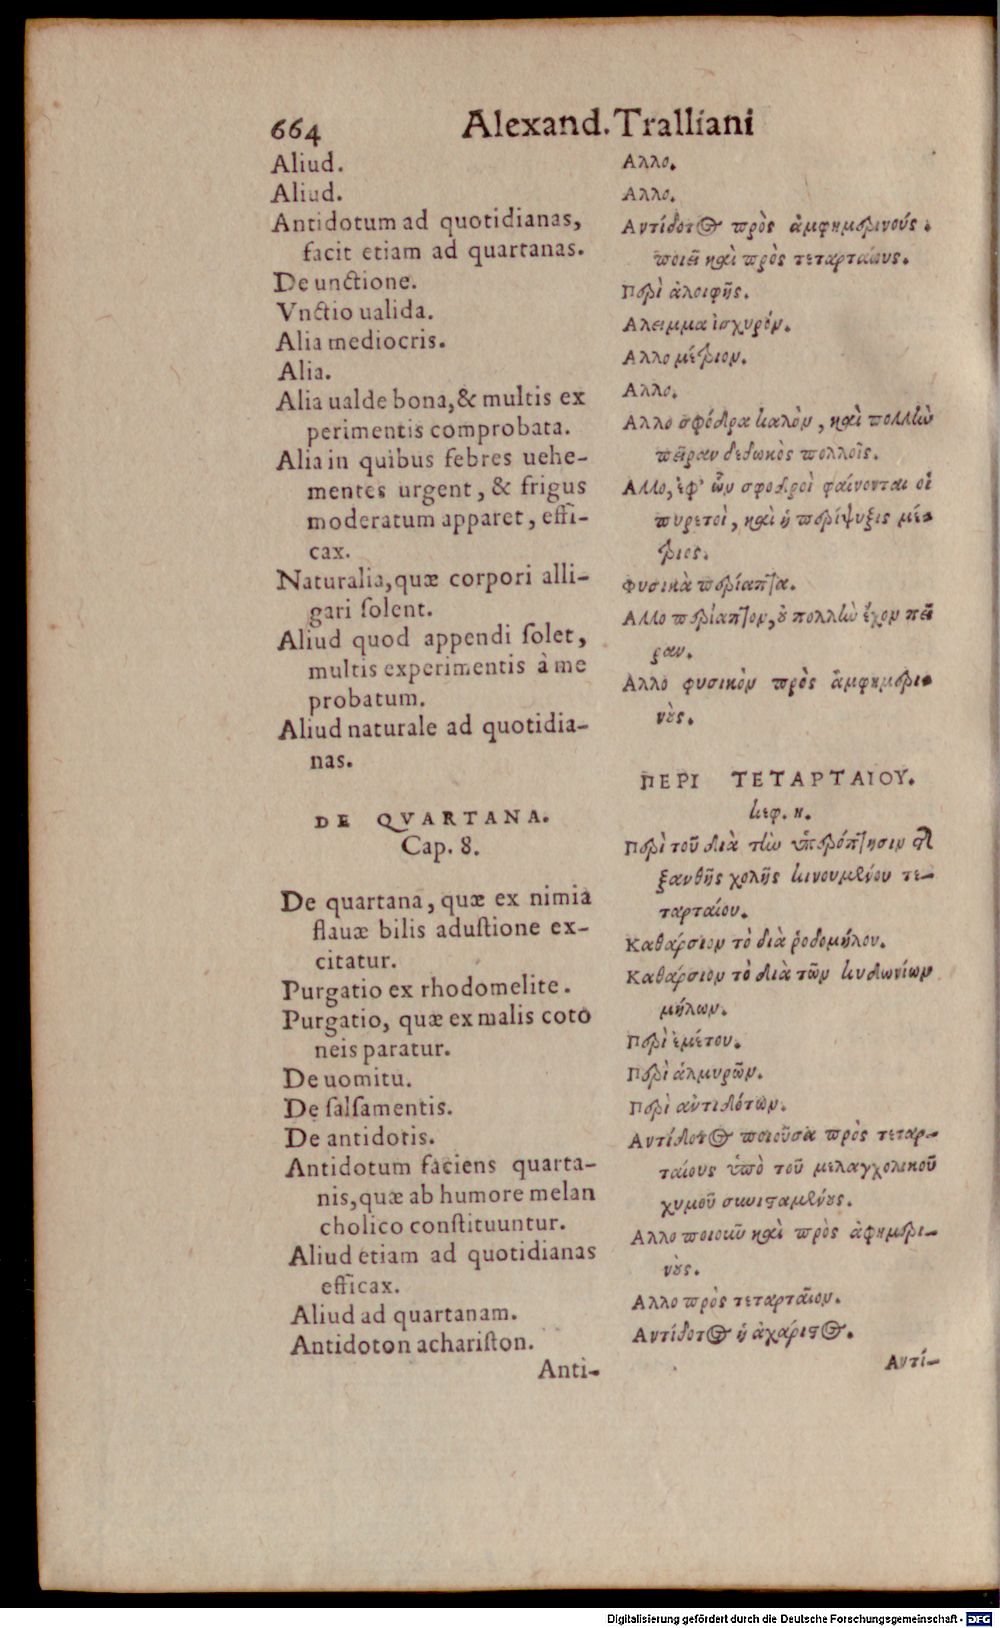 664 Alexand. Tralliani
Aliud.
Aliud.
Antidotum ad quotidianas,
facit etiam ad quartanas.
De unctione.
Vnctio ualida.
Alia mediocris.
Alia.
Alia ualde bona, & multis ex
perimentis comprobata.
Alia in quibus febres uehe-
mentes urgent, & frigus
moderatum apparet, effi-
cax.
Naturalia, quæ corpori alli-
gari ſolent.
Aliud quod appendi ſolet,
multis experimentis à me
probatum.
Aliud naturale ad quotidia-
nas.
DE QVARTANA.
Cap. 8.
De quartana, quæ ex nimia
flauæ bilis aduſtione ex-
citatur.
Purgatio ex rhodomelite.
Purgatio, quæ ex malis coto
neis paratur.
De uomitu.
De ſalſamentis.
De antidotis.
Antidotum faciens quarta-
nis, quæ ab humore melan
cholico conſtituuntur.
Aliud etiam ad quotidianas
efficax.
Aliud ad quartanam.
Antidoton achariſton.
Anti-
Αλλο.
Αλλο.
Αντίδοτος πρὸς ἀμφημερινούς.
ποιεῖ καὶ πρὸς τεταρταίους.
Περὶ ἀλοιφῆς.
Αλειμμα ἰσχυρόν.
Αλλο μέτριον.
Αλλο.
Αλλο σφόδρα καλὸν, καὶ πολλὴν
πεῖραν δεδωκὸς πολλοῖς.
Αλλο, ἐφ' ὧν σφοδροὶ φαίνονται οἱ
πυρετοὶ, καὶ ἡ περίψυξις μέ-
τριος.
Φυσικὰ περίαπτα.
Αλλο περίαπτον, ὃ πολλὴν ἔχον πεῖ
ραν.
Αλλο φυσικὸν πρὸς ἀμφημερι-
νούς.
ΠΕΡΙ ΤΕΤΑΡΤΑΙΟΥ.
κεφ. η.
Περὶ τοῦ διὰ τὴν ὑπερόπτησιν τῆς
ξανθῆς χολῆς κινουμένου τε-
ταρταίου.
Καθάρσιον τὸ διὰ ῥοδομήλου.
Καθάρσιον τὸ διὰ τῶν κυδωνίων
μήλων.
Περὶ ἐμέτου.
Περὶ ἁλμυρῶν.
Περὶ ἀντιδότων.
Αντίδοτος ποιοῦσα πρὸς τεταρ-
ταίους ὑπὸ τοῦ μελαγχολικοῦ
χυμοῦ συνισταμένους.
Αλλο ποιοῦν καὶ πρὸς ἀφημερι-
νούς.
Αλλο πρὸς τεταρταῖον.
Αντίδοτος ἡ ἀχάριστος.
Αντί-
Digitalisierung gefördert durch die Deutsche Forschungsgemeinschaft - DFG